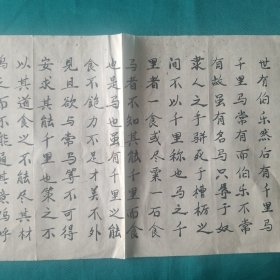 世有伯乐然后有千里马
千里马常有而伯乐不常
有故虽有名马只辱于奴
隶人之手骈死于槽枥之
间不以千里称也马之千
里者一食或尽粟一石食
马者不知其能千里而食
也是马也虽有千里之能
食不饱力不足才美不外
见且欲与常马等不可得
安求其能千里也策之不
以其道食之不能尽其材
鸣之而不能通其意呜呼